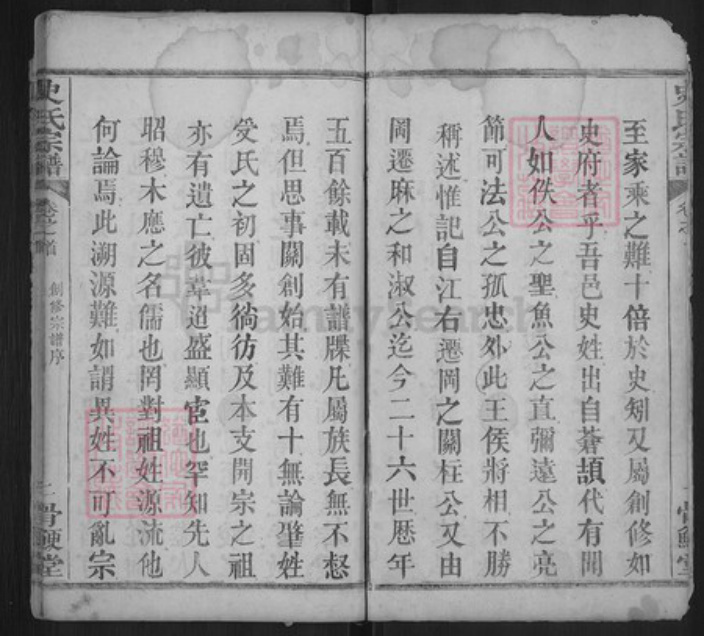 至家乘之難十倍於史矧又屬創修如
史府者乎吾邑史姓出自蒼頡代有聞
人如佚公之聖魚公之直彌遠公之亮
節可法公之孤忠外此王侯將相不勝
稱述惟記自江右遷岡之關柱公又由
岡遷麻之和淑公迄今二十六世歷年
五百餘載未有譜牒凡屬族長無不惄
焉但思事關創始其難有十無論肇姓
受氏之初固多徜彷及本支開宗之祖
亦有遺亡彼韋迢盛顯宦也罕知先人
昭穆木應之名儒也罔對祖姓源流他
何論焉此溯源難如謂異姓不可亂宗
史氏宗譜
卷之首
創修宗譜序
骨鯁堂
史氏宗譜
骨鯁堂
FamilySearch